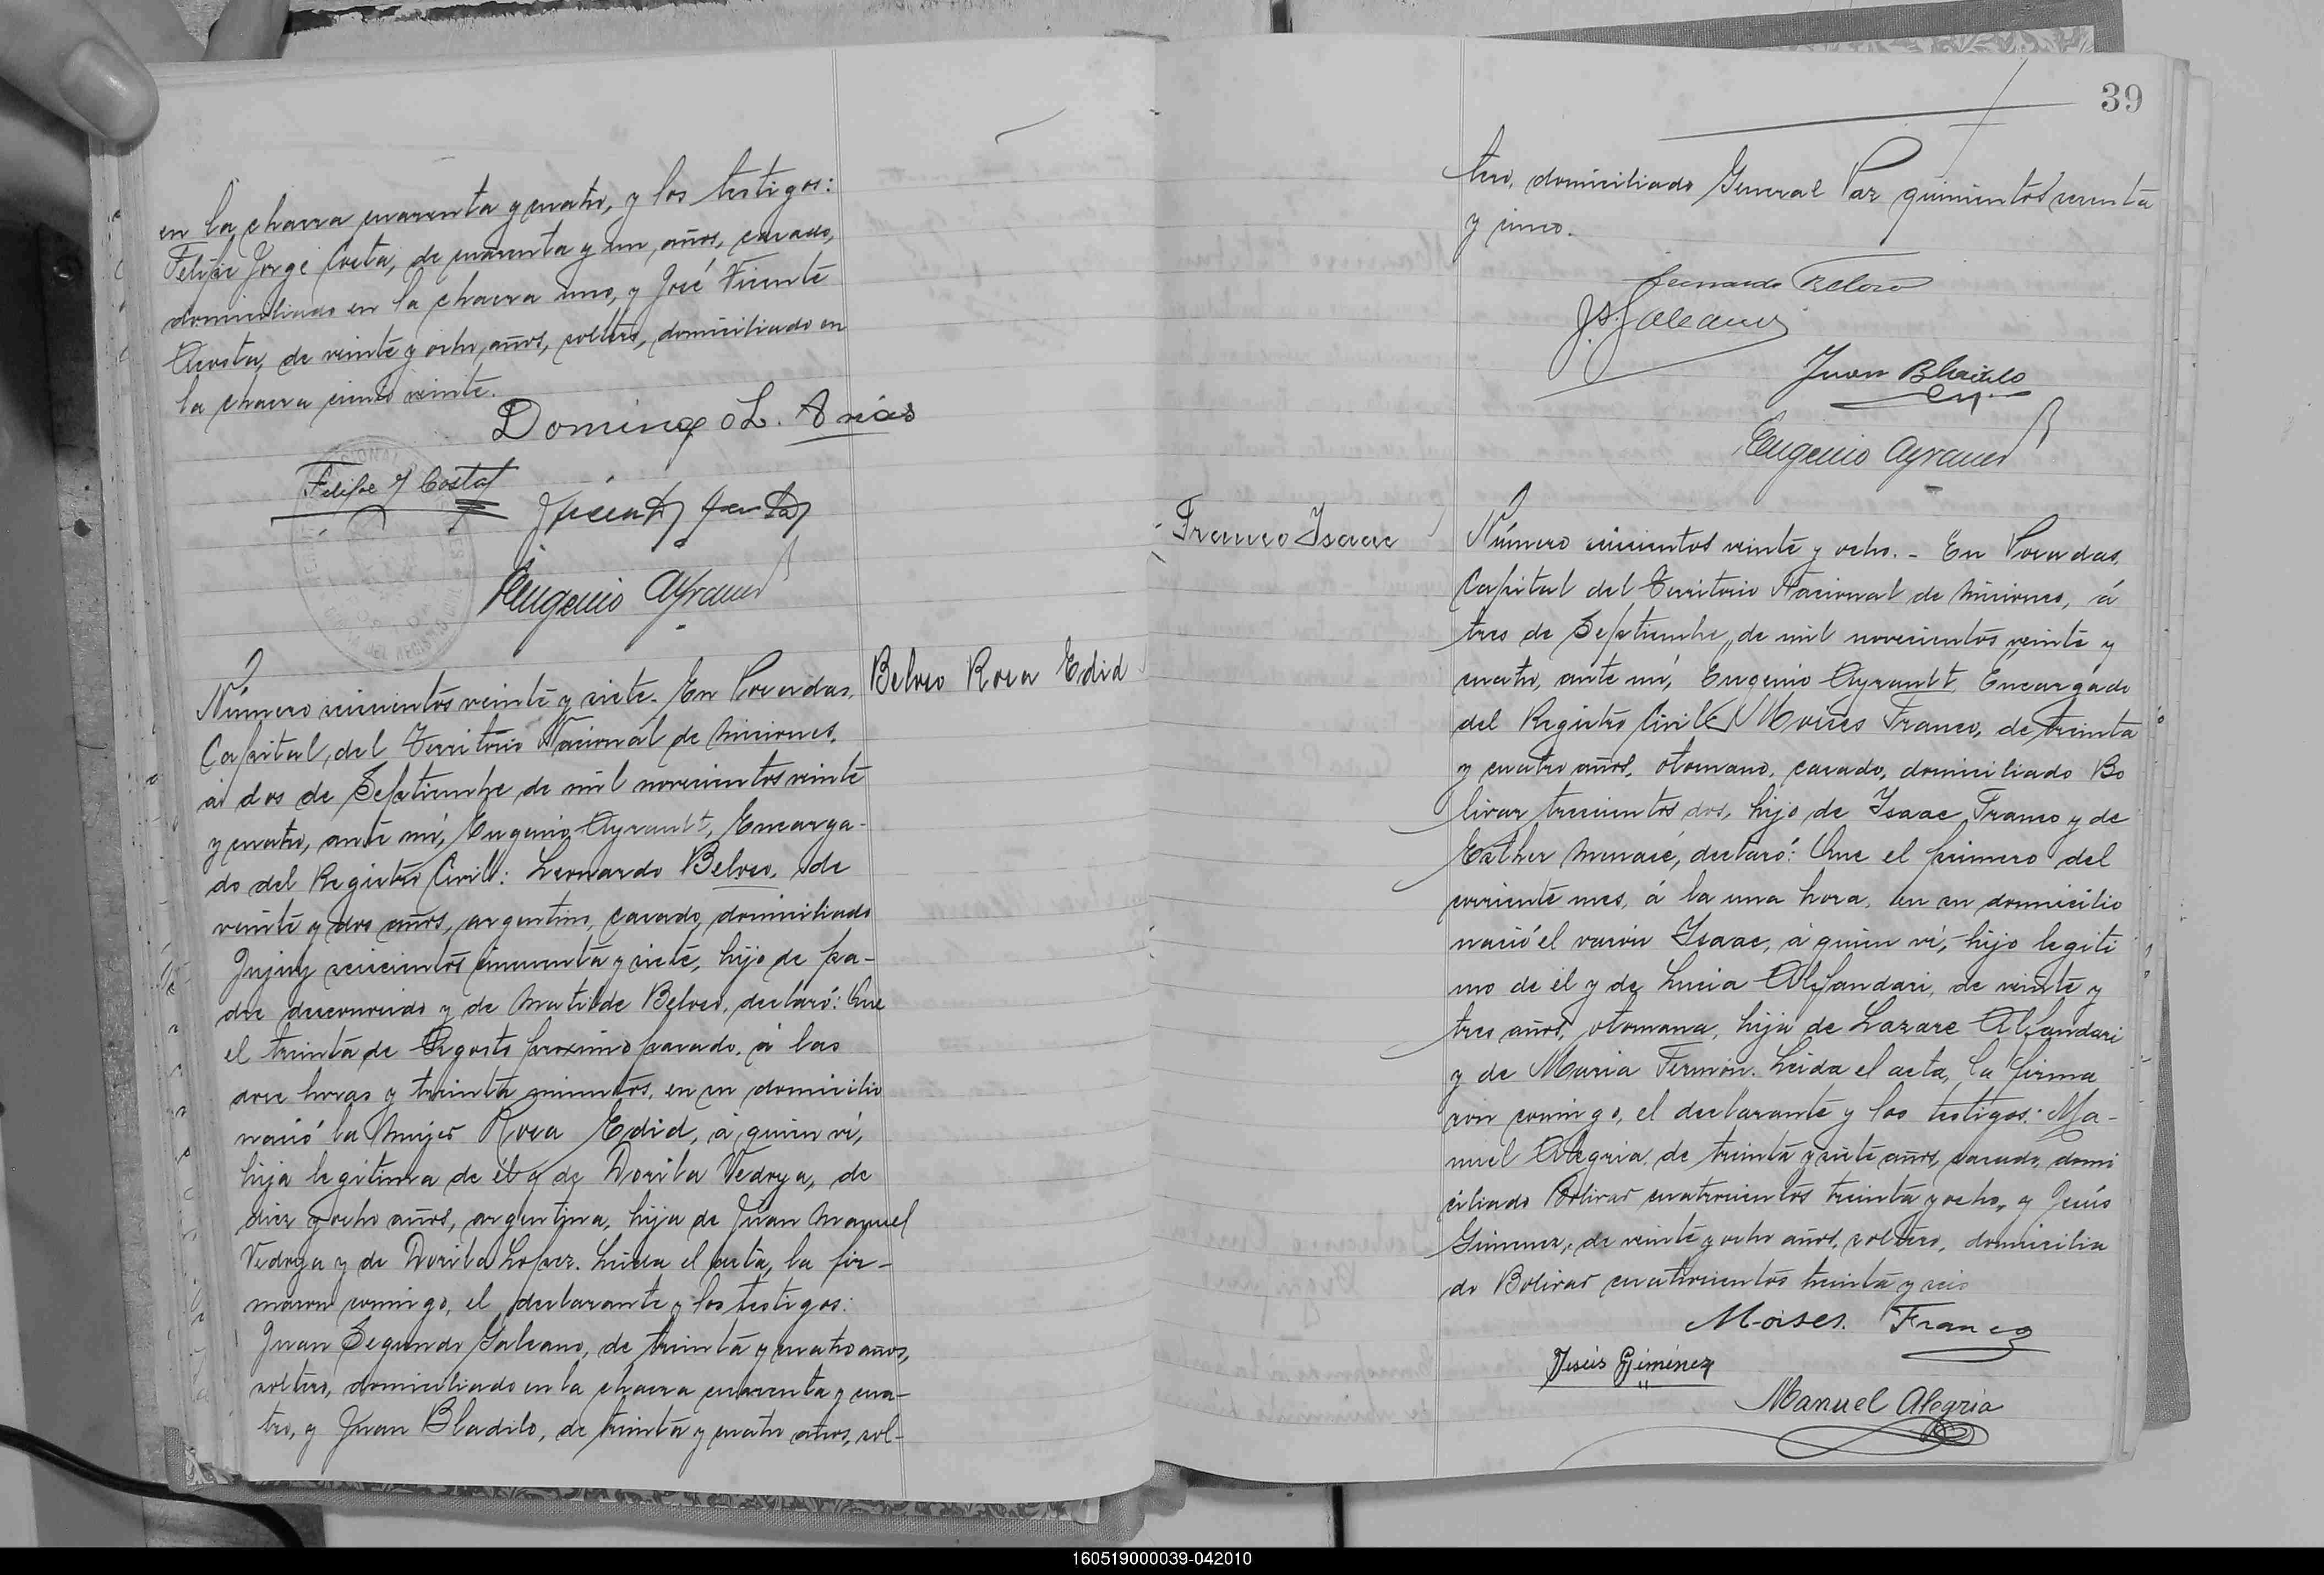 en la chacra cuarenta y cuatro, y los testigos:
Felipe Jorge Costa, de cuarenta y un años, casado,
domiciliado en la chacra uno, y José Vicente
Acosta, de veinte y ocho años, soltero, domiciliado en
la chacra ciento veinte.
Domingo L. Arias
Felipe J Costa
Eugenio Ayrault
Número seiscientos veinte y siete. En Posadas,
Capital, del Territorio Nacional de Misiones,
á dos de Septiembre, de mil novecientos veinte
y cuatro, ante mí, Eugenio Ayrault, Encarga-
do del Registro Civil: Leonardo Beloso, de
veinte y dos años, argentino, casado, domiciliado
Jujuy seiscientos cincuenta y siete, hijo de pa-
dre desconocido y de Matilde Beloso, declaró: Que
el treinta de Agosto proximo pasado, á las
doce horas y treinta minutos, en su domicilio
nació la mujer Rosa Edid, á quien ví,
hija legitima de él y de Dorila Vedoya, de
diez y ocho años, argentina, hija de Juan Manuel
Vedoya y de Dorila Lopez. Leida el acta, la fir-
maron conmigo, el declarante y los testigos:
Juan Segundo Galeano, de treinta y cuatro años,
soltero, domiciliado en la chacra cuarenta y cua-
tro, y Juan Bladilo, de treinta y cuatro años, sol-
Beloso Rosa Edid
39
tero, domiciliado General Paz quinientos setenta
y cinco.
Leonardo Beloso
J. S. Galeano
Juan Bladilo
Eugenio Ayrault
Franco Isaac
Número seiscientos veinte y ocho. - En Posadas,
Capital del Territorio Nacional de Misiones, á
tres de Septiembre, de mil novecientos veinte y
cuatro, ante mí, Eugenio Ayrault, Encargado
del Registro Civil: Moises Franco, de treinta
y cuatro años, otomano, casado, domiciliado Bo
livar trescientos dos, hijo de Isaac Franco y de
Esther Menasé, declaró: Que el primero del
corriente mes, á la una hora, en su domicilio
nació el varón Isaac, á quien ví, hijo legiti
mo de él y de Lucia Alfandari, de veinte y
tres años, otomana, hija de Lazare Alfandari
y de Maria Fermón. Leida el acta, la firma
ron conmigo, el declarante y los testigos: Ma-
nuel Alegria, de treinta y siete años, casado, domi
ciliado Bolivar cuatrocientos treinta y ocho, y Jesús
Gimenez, de veinte y ocho años, soltero, domicilia
do Bolivar cuatrocientos treinta y seis
Moises. Franco
Jesús Giménez
Manuel Alegria
160519000039-042010